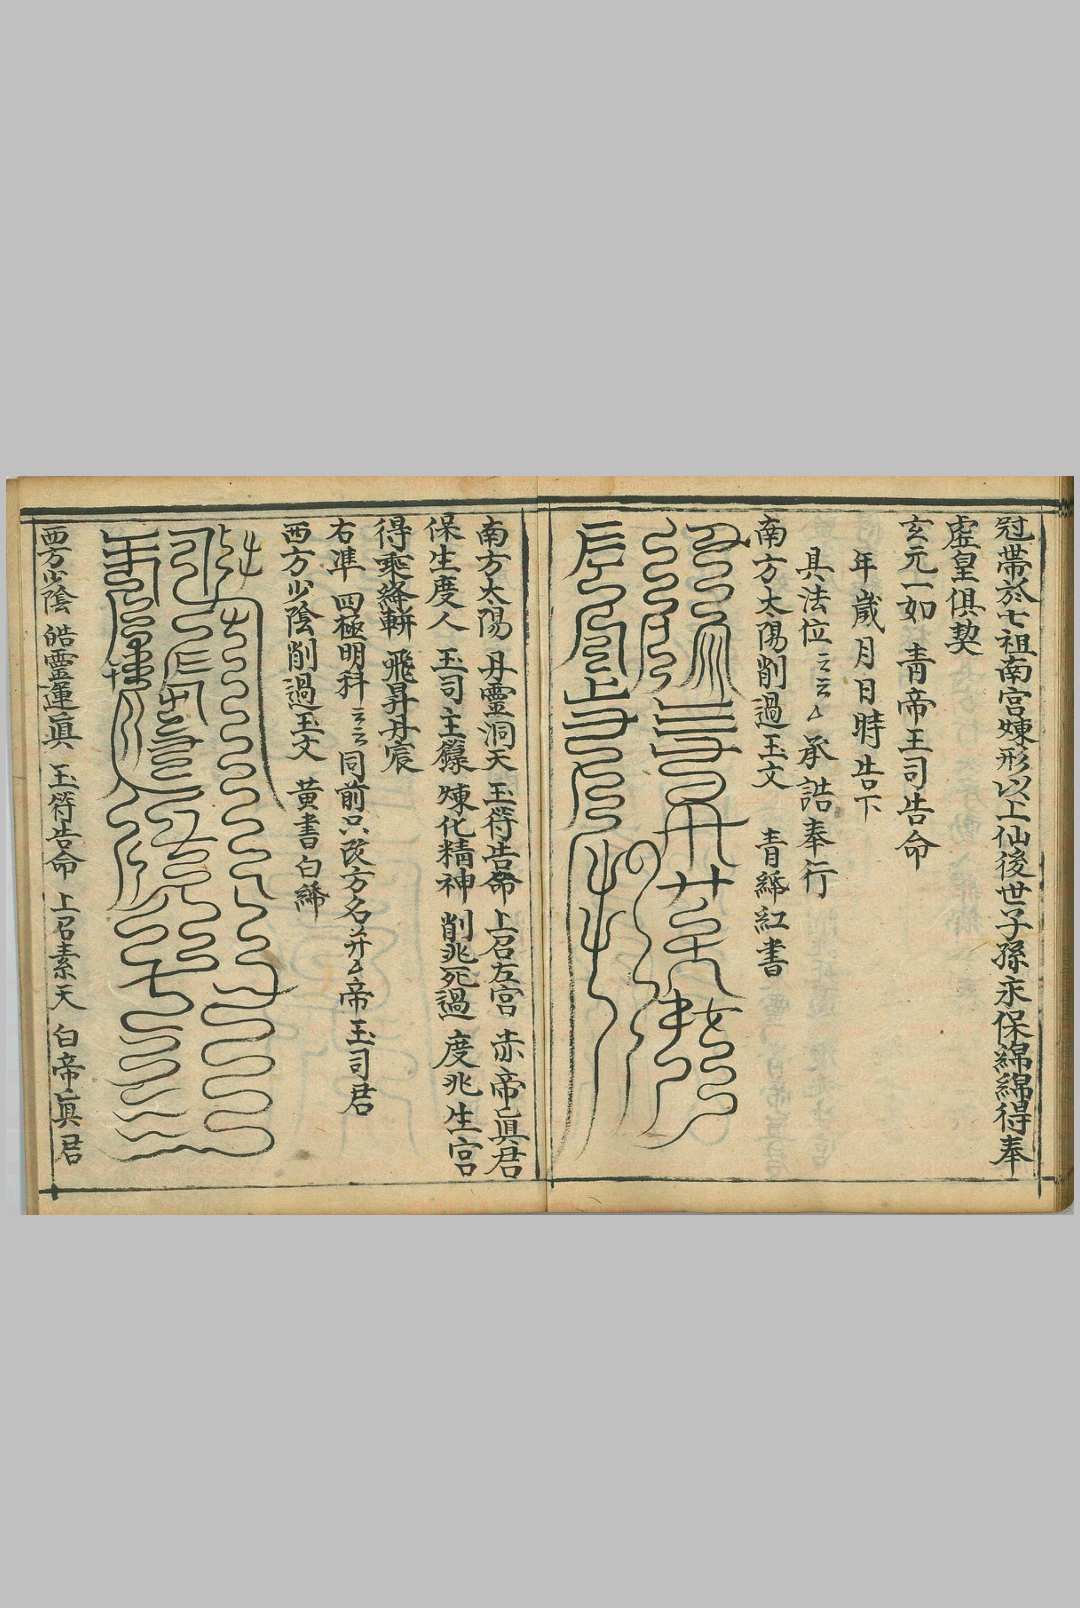 冠帶於七祖南宮煉形以上仙後世子孫永保綿綿得奉
虛皇俱契
玄元一如 青帝玉司告命
年歲月日時告下
具法位云云ム承誥奉行
南方太陽削過玉文 青繒紅書
南方太陽 丹靈洞天 玉符告命 上召左宮 赤帝眞君
保生度人 玉司主籙 煉化精神 削兆死過 度兆生宮
得乘絳軿 飛昇丹宸
右準 四極明科云云同前只改方名并ム帝玉司君
西方少陰削過玉文 黃書白繒
西方少陰 皓靈運眞 玉符告命 上召素天 白帝眞君